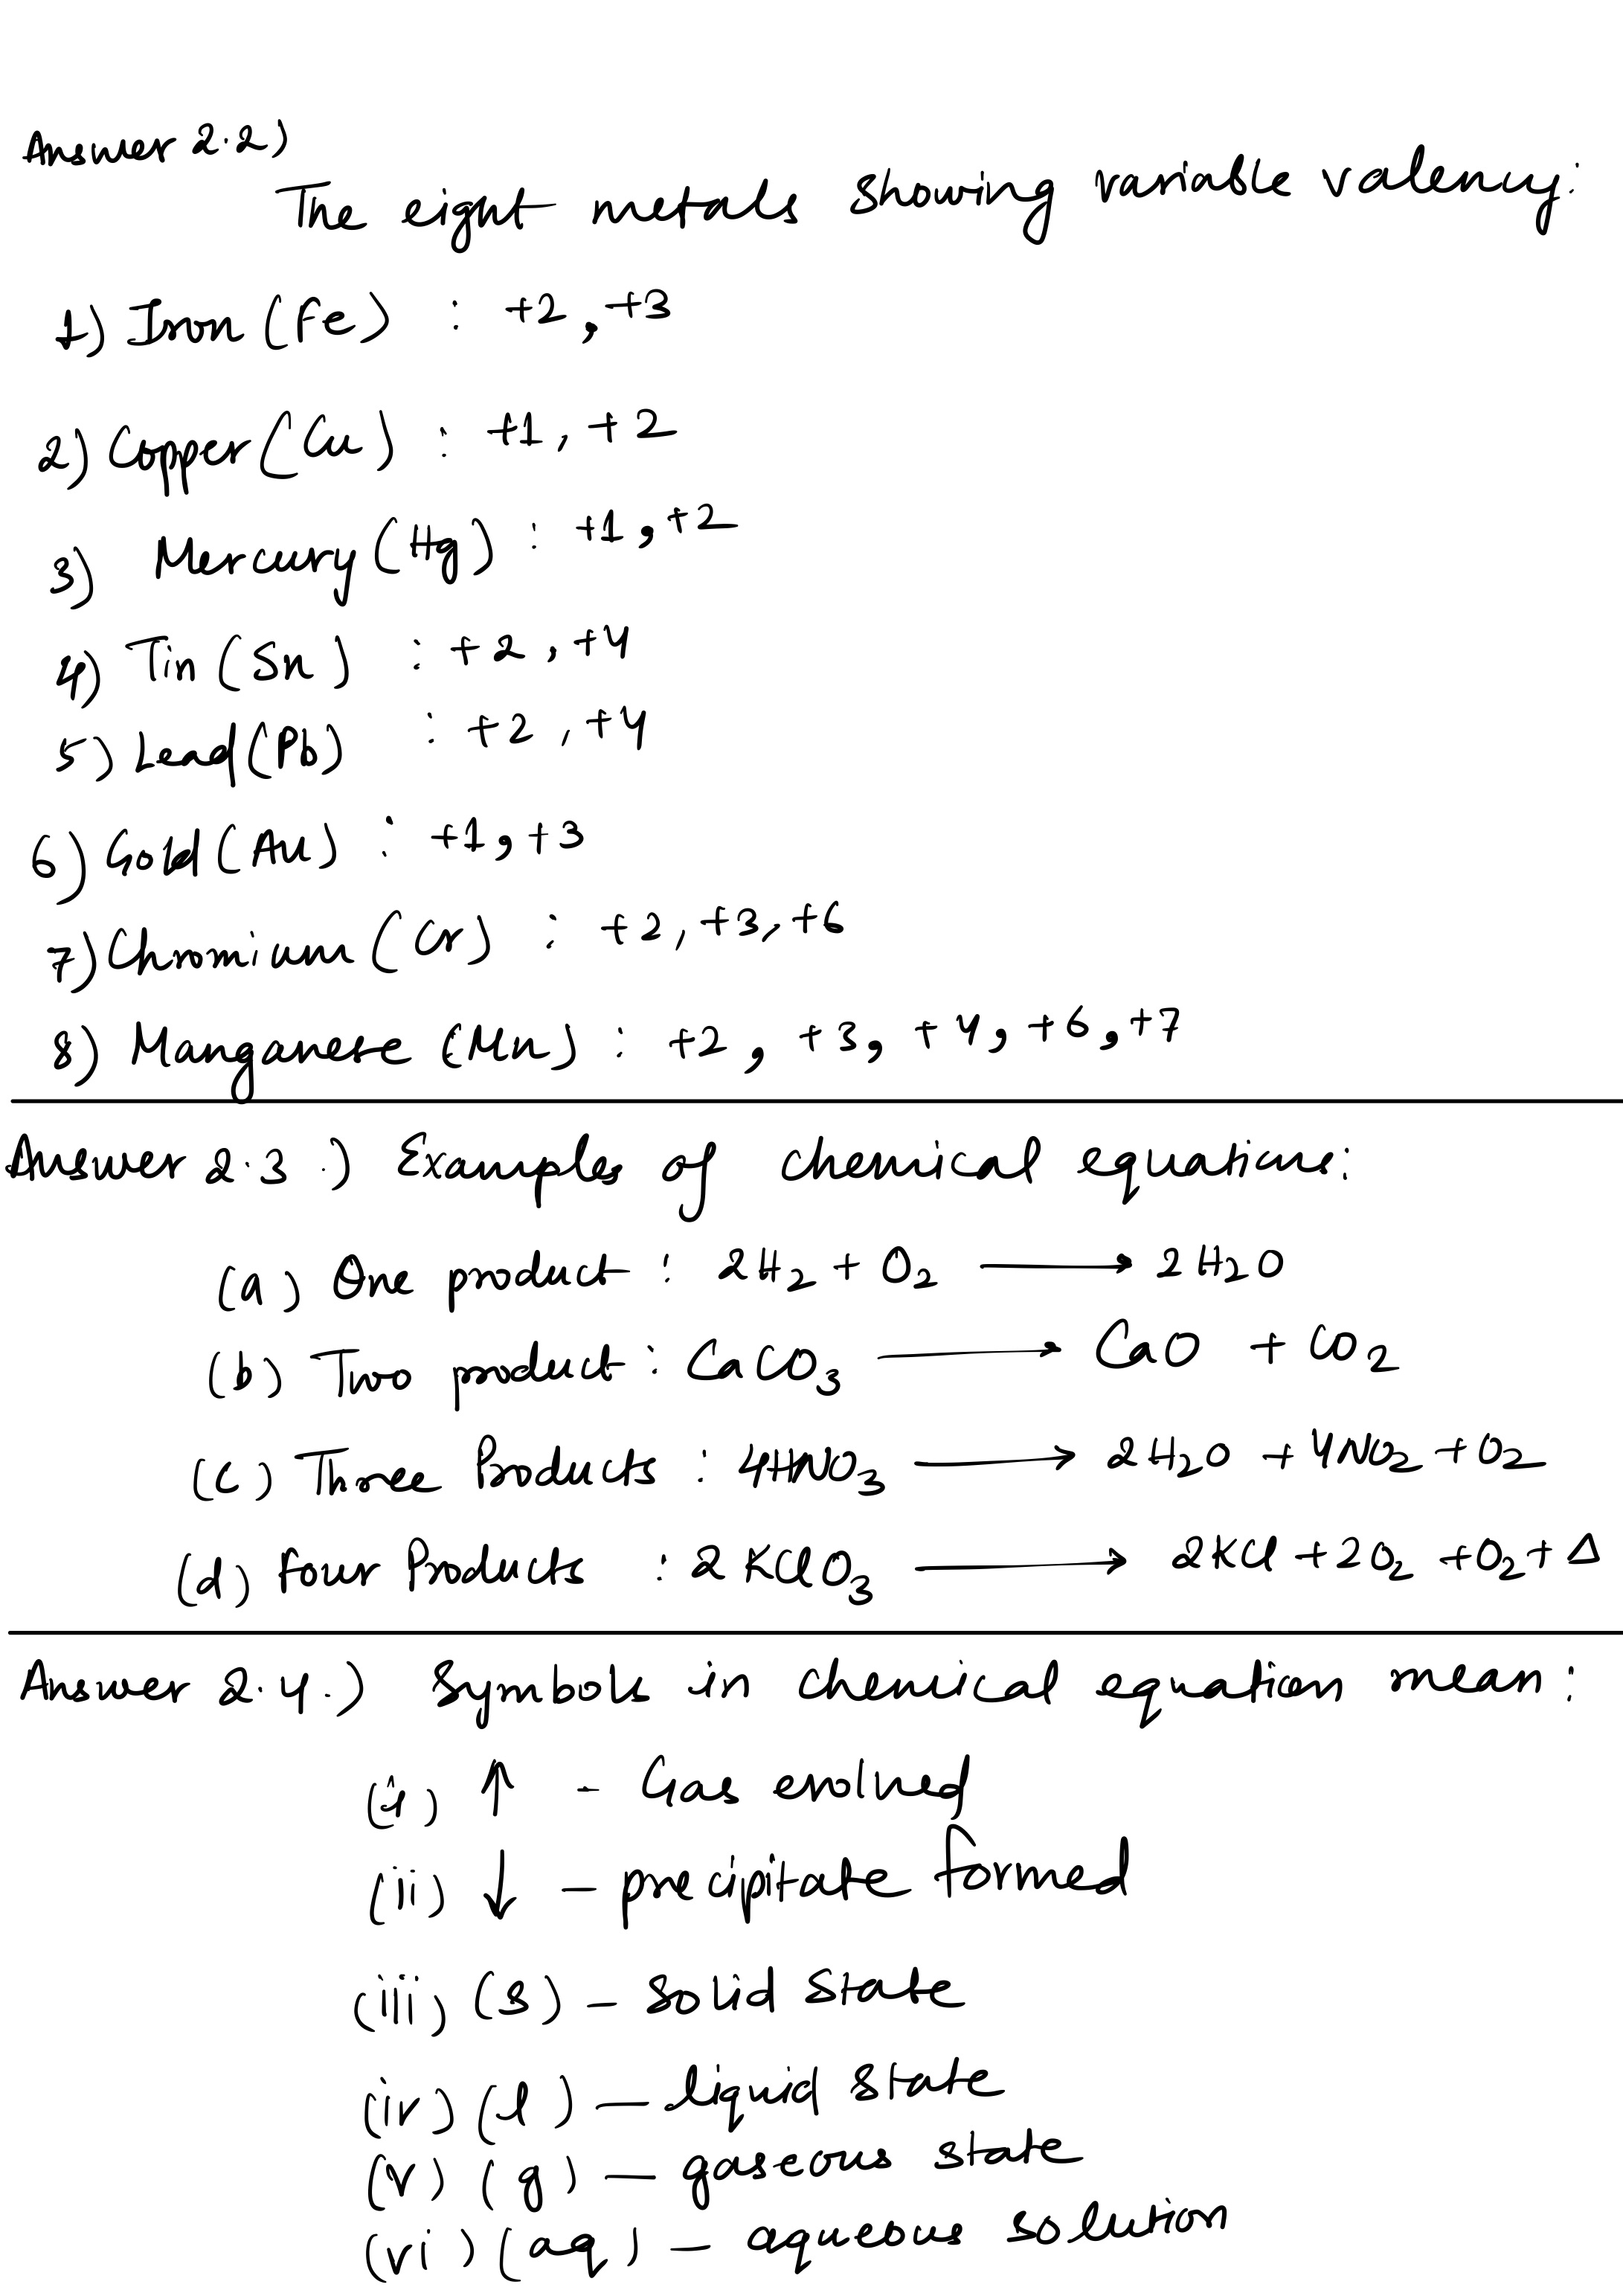 Answer 2.2)
The eight metals showing variable valency:
1) Iron (Fe) : +2, +3
2) Copper (Cu) : +1, +2
3) Mercury (Hg) : +1, +2
4) Tin (Sn) : +2, +4
5) Lead (Pb) : +2, +4
6) Gold (Au) : +1, +3
7) Chromium (Cr) : +2, +3, +6
8) Manganese (Mn) : +2, +3, +4, +6, +7
Answer 2.3.) Examples of chemical equations:
(a) One product : 2H₂ + O₂ ⟶ 2H₂O
(b) Two product : CaCO₃ ⟶ CaO + CO₂
(c) Three Products : 4HNO₃ ⟶ 2H₂O + 4NO₂ + O₂
(d) Four Products : 2KClO₃ ⟶ 2KCl + 2O₂ + O₂ + Δ
Answer 2.4.) Symbols in chemical equation mean :
(i) ↑ - Gas evolved
(ii) ↓ - precipitate formed
(iii) (s) - solid state
(iv) (l) - liquid state
(v) (g) - gaseous state
(vi) (aq) - aqueous solution